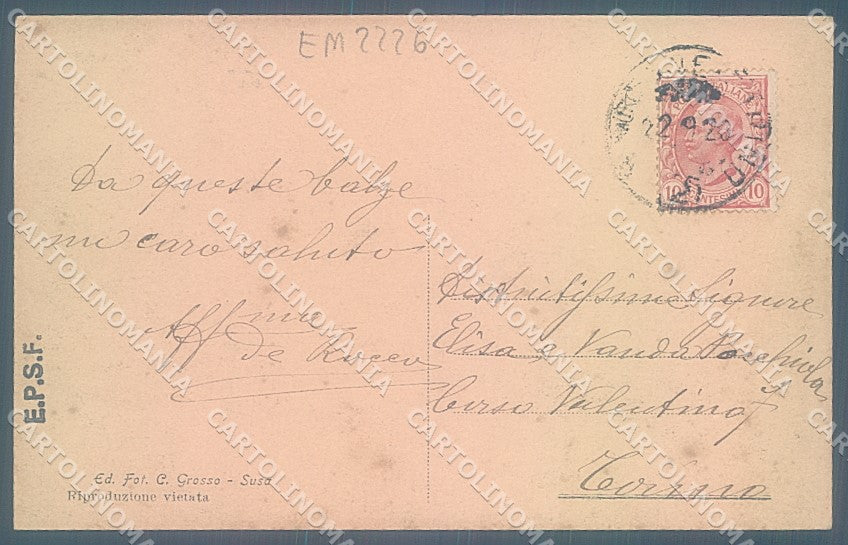 EM2226
22 9 20
10 10
Da queste balze
un caro saluto
Aff.mo
de Rocco
Distintissime Signore
Elisa e Vanda
Corso Valentino 7
Torino
E.P.S.F.
Ed. Fot. C. Grosso - Susa
Riproduzione vietata
CARTOLINOMANIA